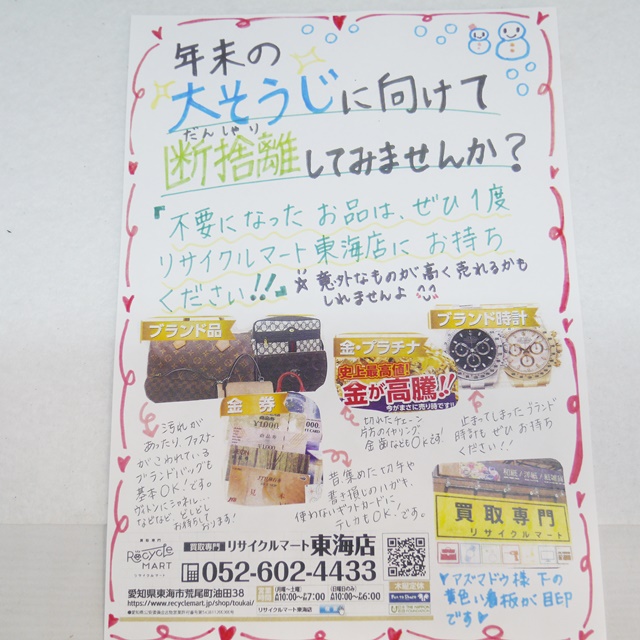 年末の
大そうじに向けて
だんしゃり
断捨離してみませんか？
『不要になったお品は、ぜひ1度
リサイクルマート東海店にお持ち
ください!!』
☆意外なものが高く売れるかも
しれませんよ
ブランド品
金・プラチナ
史上最高値!
金が高騰!!
今がまさに売り時です!!
ブランド時計
金券
汚れが
あったり、ファスナー
がこわれている
ブランドバッグも
基本OK！です。
ヴィトンにシャネル…
などなど、どしどし
お持ちして
おります！
切れたチェーン
片方のイヤリング
金歯などもOKです!
止まってしまったブランド
時計もぜひお持ち
ください!!
昔集めた切手や
書き損じのハガキ、
使わないギフトカードに
テレカもOK！です。
買取専門
リサイクルマート
買取専門
Recycle
MART
リサイクルマート
買取専門 リサイクルマート東海店
052-602-4433
愛知県東海市荒尾町油田38
https://www.recyclemart.jp/shop/toukai/
(月曜〜土曜)
AM10:00〜PM7:00
(日曜日のみ)
AM10:00〜PM6:00
リサイクルマート東海店
♥アズマドウ様下の
黄色い看板が目印
です♥